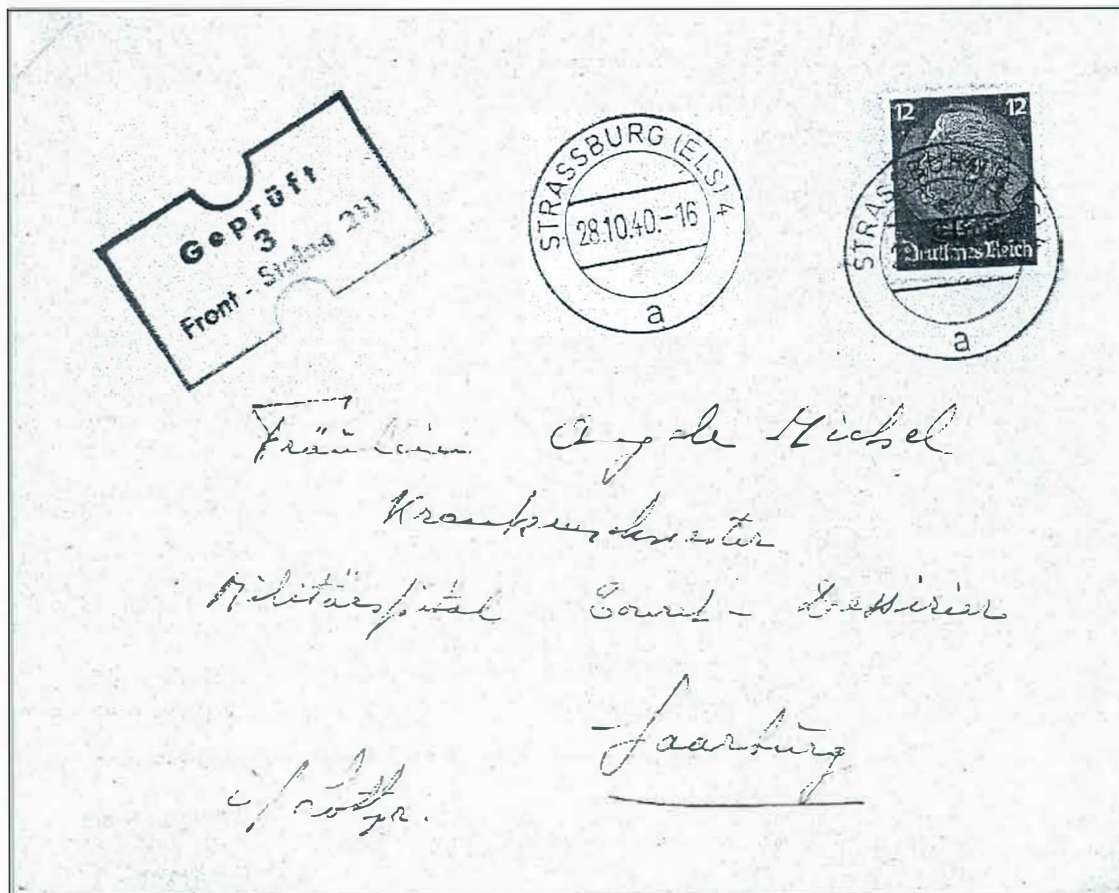 Geprüft
3
Front - Stalag 211
STRASSBURG (ELS) 4
28.10.40.-16
a
12 12
Deutsches Reich
a
Fräulein Angele Michel
Krankenschwester
Militärspital
Saarburg